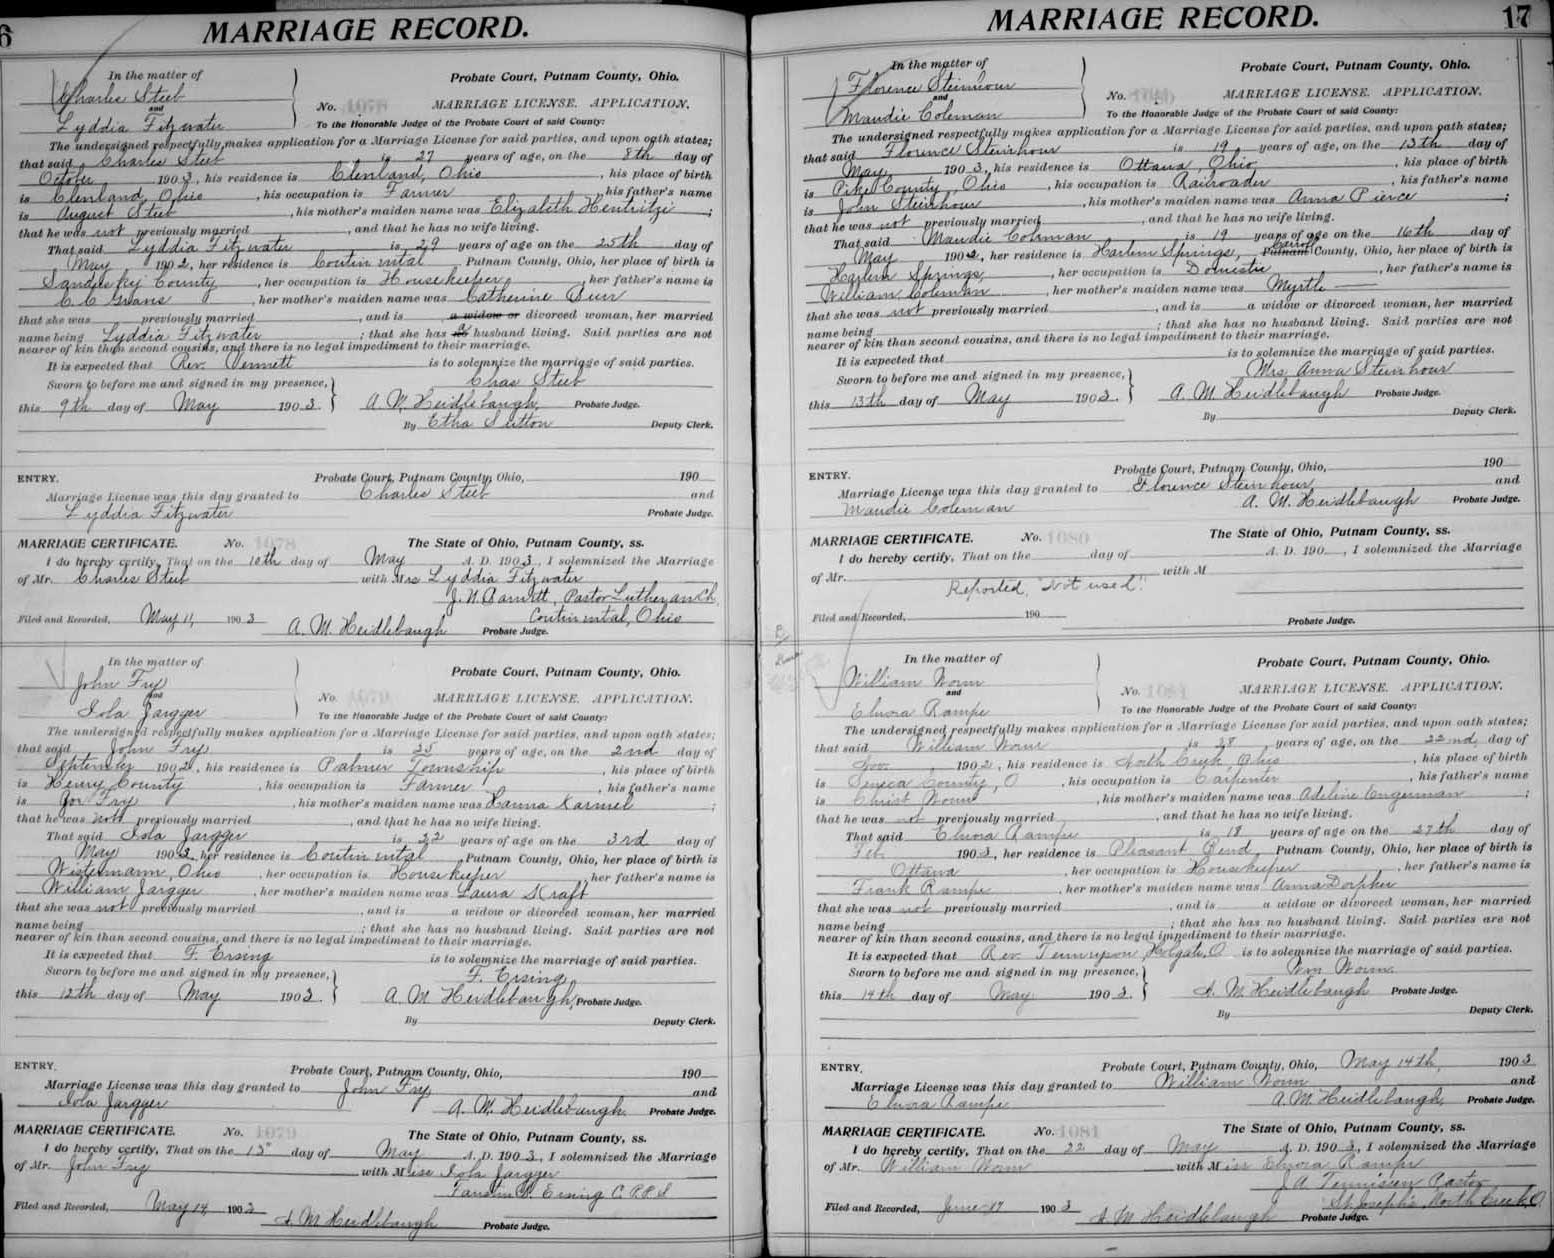 6
MARRIAGE RECORD.
In the matter of
Charles Steeb
and
Lyddia Fitzwater
Probate Court, Putnam County, Ohio.
No. 1078 MARRIAGE LICENSE. APPLICATION.
To the Honorable Judge of the Probate Court of said County:
The undersigned respectfully makes application for a Marriage License for said parties, and upon oath states;
that said Charles Steeb is 27 years of age, on the 8th day of
October 190 , his residence is Cleveland, Ohio , his place of birth
is Cleveland, Ohio , his occupation is Farmer , his father's name
is August Steeb , his mother's maiden name was Elizabeth ;
that he was not previously married , and that he has no wife living.
That said Lyddia Fitzwater is 29 years of age on the 25th day of
May 1902, her residence is Continental , Putnam County, Ohio, her place of birth is
Sandusky County , her occupation is Housekeeper , her father's name is
C. C. , her mother's maiden name was Catherine
that she was previously married , and is , a widow or divorced woman, her married
name being Lyddia Fitzwater ; that she has husband living. Said parties are not
nearer of kin than second cousins, and there is no legal impediment to their marriage.
It is expected that Rev. is to solemnize the marriage of said parties.
Sworn to before me and signed in my presence, Chas Steeb
this 9th day of May 1903. A. M. Heidlebaugh, Probate Judge.
By Etha Sutton Deputy Clerk.
ENTRY. Probate Court, Putnam County, Ohio, 190
Marriage License was this day granted to Charles Steeb and
Lyddia Fitzwater Probate Judge.
MARRIAGE CERTIFICATE. No. 1078 The State of Ohio, Putnam County, ss.
I do hereby certify, That on the 10th day of May A. D. 1903, I solemnized the Marriage
of Mr. Charles Steeb with Mrs Lyddia Fitzwater
J. N. , Pastor Lutheran Ch,
Continental, Ohio
Filed and Recorded, May 11, 1903 A. M. Heidlebaugh Probate Judge.
In the matter of
John Fry
and
Iola Jargger
Probate Court, Putnam County, Ohio.
No. 1079 MARRIAGE LICENSE. APPLICATION.
To the Honorable Judge of the Probate Court of said County:
The undersigned respectfully makes application for a Marriage License for said parties, and upon oath states;
that said John Fry is 25 years of age, on the 2nd day of
September 1902, his residence is Palmer Township , his place of birth
is Henry County , his occupation is Farmer , his father's name
is Fry , his mother's maiden name was Hanna ;
that he was not previously married , and that he has no wife living.
That said Iola Jargger is 22 years of age on the 3rd day of
May 1903, her residence is Continental , Putnam County, Ohio, her place of birth is
Wistermann, Ohio , her occupation is Housekeeper , her father's name is
William Jargger , her mother's maiden name was Laura
that she was not previously married , and is a widow or divorced woman, her married
name being ; that she has no husband living. Said parties are not
nearer of kin than second cousins, and there is no legal impediment to their marriage.
It is expected that F. Ersing is to solemnize the marriage of said parties.
Sworn to before me and signed in my presence, F. Ersing
this 12th day of May 1903. A. M. Heidlebaugh, Probate Judge.
By Deputy Clerk.
ENTRY. Probate Court, Putnam County, Ohio, 190
Marriage License was this day granted to John Fry, and
Iola Jargger A. M. Heidlebaugh. Probate Judge.
MARRIAGE CERTIFICATE. No. 1079 The State of Ohio, Putnam County, ss.
I do hereby certify, That on the 13" day of May A. D. 1903, I solemnized the Marriage
of Mr. John Fry with Miss Iola Jargger
Ersing C.PP.S
Filed and Recorded, May 14, 1903 A. M. Heidlebaugh Probate Judge.
MARRIAGE RECORD. 17
In the matter of
Florence Steinhour
and
Maudie Coleman
Probate Court, Putnam County, Ohio.
No. 1080 MARRIAGE LICENSE. APPLICATION.
To the Honorable Judge of the Probate Court of said County:
The undersigned respectfully makes application for a Marriage License for said parties, and upon oath states;
that said Florence Steinhour is 19 years of age, on the 13th day of
May 1903, his residence is Ottawa, Ohio , his place of birth
is Pike County, Ohio , his occupation is Railroader , his father's name
is John Steinhour , his mother's maiden name was Anna Pierce ;
that he was not previously married , and that he has no wife living.
That said Maudie Coleman is 19 years of age on the 16th day of
May 1902, her residence is Harlem Springs, Carroll Putnam County, Ohio, her place of birth is
Harlem Springs, , her occupation is Domestic , her father's name is
William Coleman , her mother's maiden name was Myrtle —
that she was not previously married , and is a widow or divorced woman, her married
name being ; that she has no husband living. Said parties are not
nearer of kin than second cousins, and there is no legal impediment to their marriage.
It is expected that is to solemnize the marriage of said parties.
Sworn to before me and signed in my presence, Mrs. Anna Steinhour
this 13th day of May 1903. A. M. Heidlebaugh Probate Judge.
By Deputy Clerk.
ENTRY. Probate Court, Putnam County, Ohio, 190
Marriage License was this day granted to Florence Steinhour and
Maudie Coleman A. M. Heidlebaugh Probate Judge.
MARRIAGE CERTIFICATE. No. 1080 The State of Ohio, Putnam County, ss.
I do hereby certify, That on the day of A. D. 190 , I solemnized the Marriage
of Mr. with M
Reported, "Not used".
Filed and Recorded, 190 Probate Judge.
In the matter of
William Worm
and
Elnora Rampe
Probate Court, Putnam County, Ohio.
No. 1081 MARRIAGE LICENSE. APPLICATION.
To the Honorable Judge of the Probate Court of said County:
The undersigned respectfully makes application for a Marriage License for said parties, and upon oath states;
that said William Worm is 28 years of age, on the 22nd, day of
Nov. 1902, his residence is North Creek, Ohio , his place of birth
is Seneca County, O , his occupation is Carpenter , his father's name
is Christ Worm , his mother's maiden name was Adeline Engerman ;
that he was not previously married , and that he has no wife living.
That said Elnora Rampe is 18 years of age on the 27th day of
Feb. 1903, her residence is Pleasant Bend , Putnam County, Ohio, her place of birth is
Ottawa , her occupation is Housekeeper , her father's name is
Frank Rampe , her mother's maiden name was Anna
that she was not previously married , and is a widow or divorced woman, her married
name being ; that she has no husband living. Said parties are not
nearer of kin than second cousins, and there is no legal impediment to their marriage.
It is expected that Rev. Holgate, O is to solemnize the marriage of said parties.
Sworn to before me and signed in my presence, Wm Worm.
this 14th day of May 1903. A. M. Heidlebaugh Probate Judge.
By Deputy Clerk.
ENTRY. Probate Court, Putnam County, Ohio, May 14th, 1903
Marriage License was this day granted to William Worm and
Elnora Rampe A. M. Heidlebaugh, Probate Judge.
MARRIAGE CERTIFICATE. No. 1081 The State of Ohio, Putnam County, ss.
I do hereby certify, That on the 22 day of May A. D. 1903, I solemnized the Marriage
of Mr. William Worm with Miss Elnora Rampe
J A Tennissen Pastor
St. Joseph's, North Creek, O.
Filed and Recorded, June 17 1903 A. M. Heidlebaugh Probate Judge.